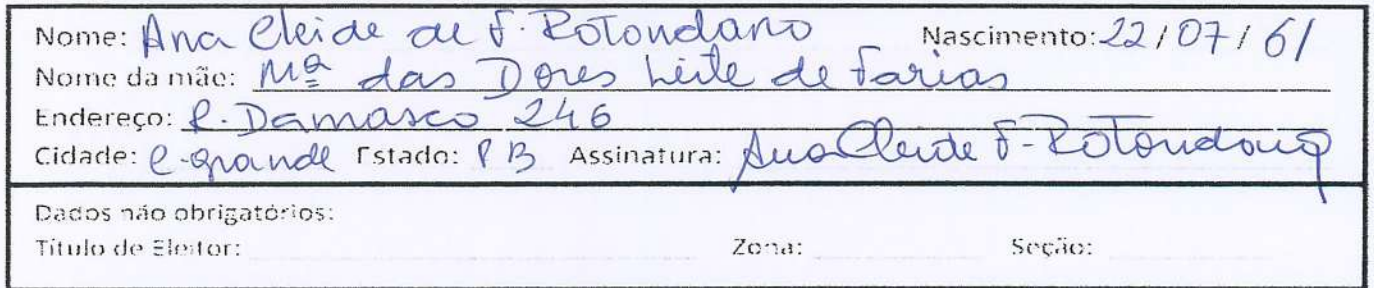 Nome: Ana Cleide de F. Rotondano Nascimento: 22/07/61
Nome da mãe: Mª das Dores Leite de Farias
Endereço: R. Damasco 246
Cidade: C. grande Estado: PB Assinatura: Ana Cleide F. Rotondano
Dados não obrigatórios:
Título de Eleitor: Zona: Seção: